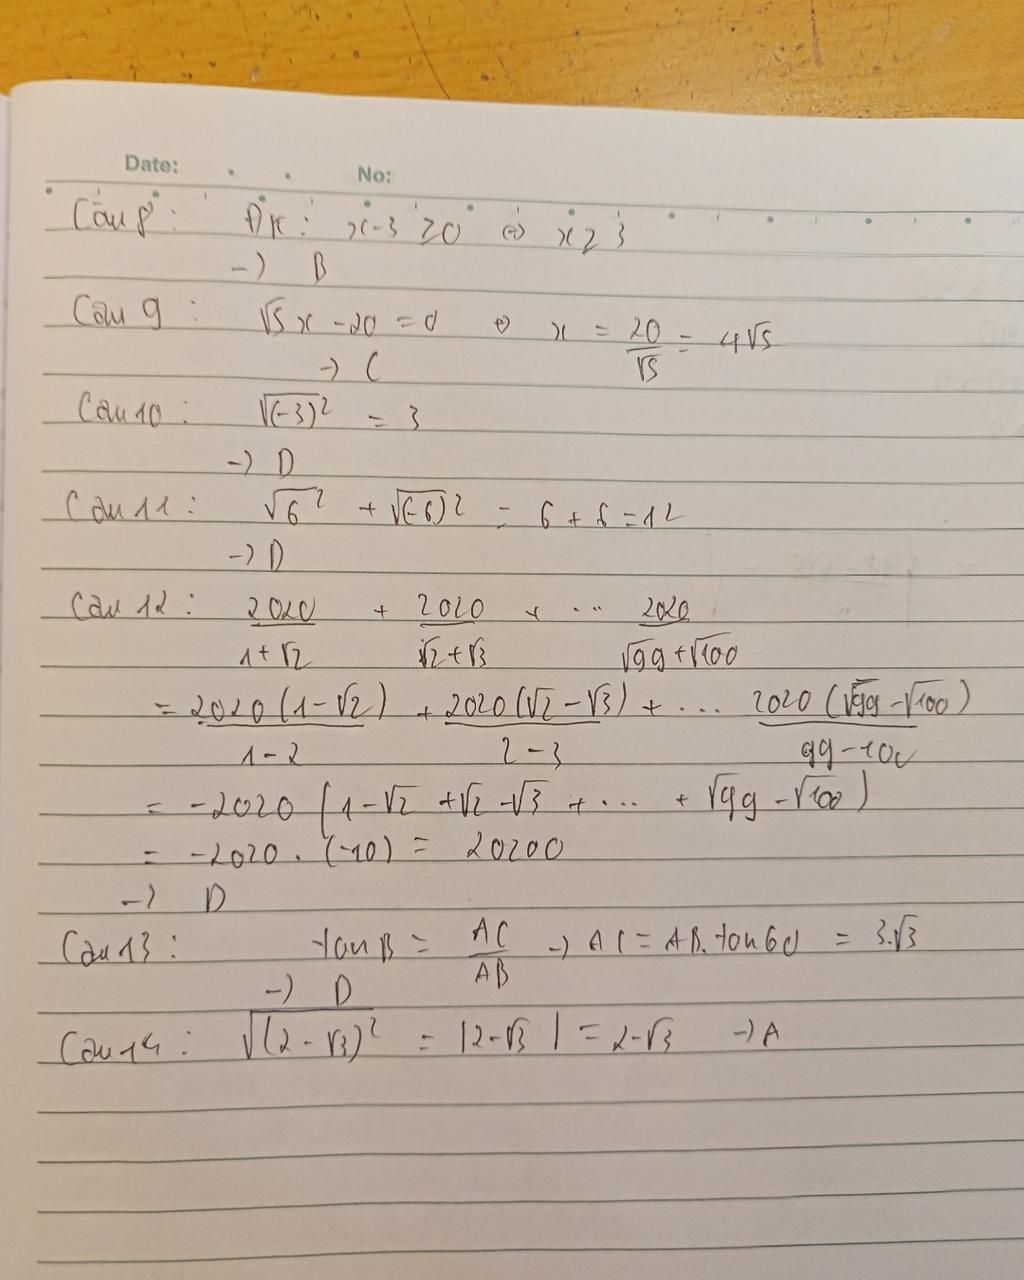 Date: No:
Câu 8: ĐK: x-3 ≥0 ⇔ x ≥ 3
-> B
Câu 9: √5 x - 20 = 0 ⇔ x = 20/√5 = 4√5
-> C
Câu 10: √(-3)² = 3
-> D
Câu 11: √6² + √(-6)² = 6 + 6 = 12
-> D
Câu 12: 2020/(1+√2) + 2020/(√2+√3) + ... 2020/(√99+√100)
= 2020(1-√2)/(1-2) + 2020(√2-√3)/(2-3) + ... 2020(√99-√100)/(99-100)
= -2020 (1-√2 +√2 -√3 + ... + √99 - √100)
= -2020 . (-10) = 20200
-> D
Câu 13: tan B = AC/AB -> AC = AB. tan 60 = 3.√3
-> D
Câu 14: √(2-√3)² = |2-√3| = 2-√3 -> A